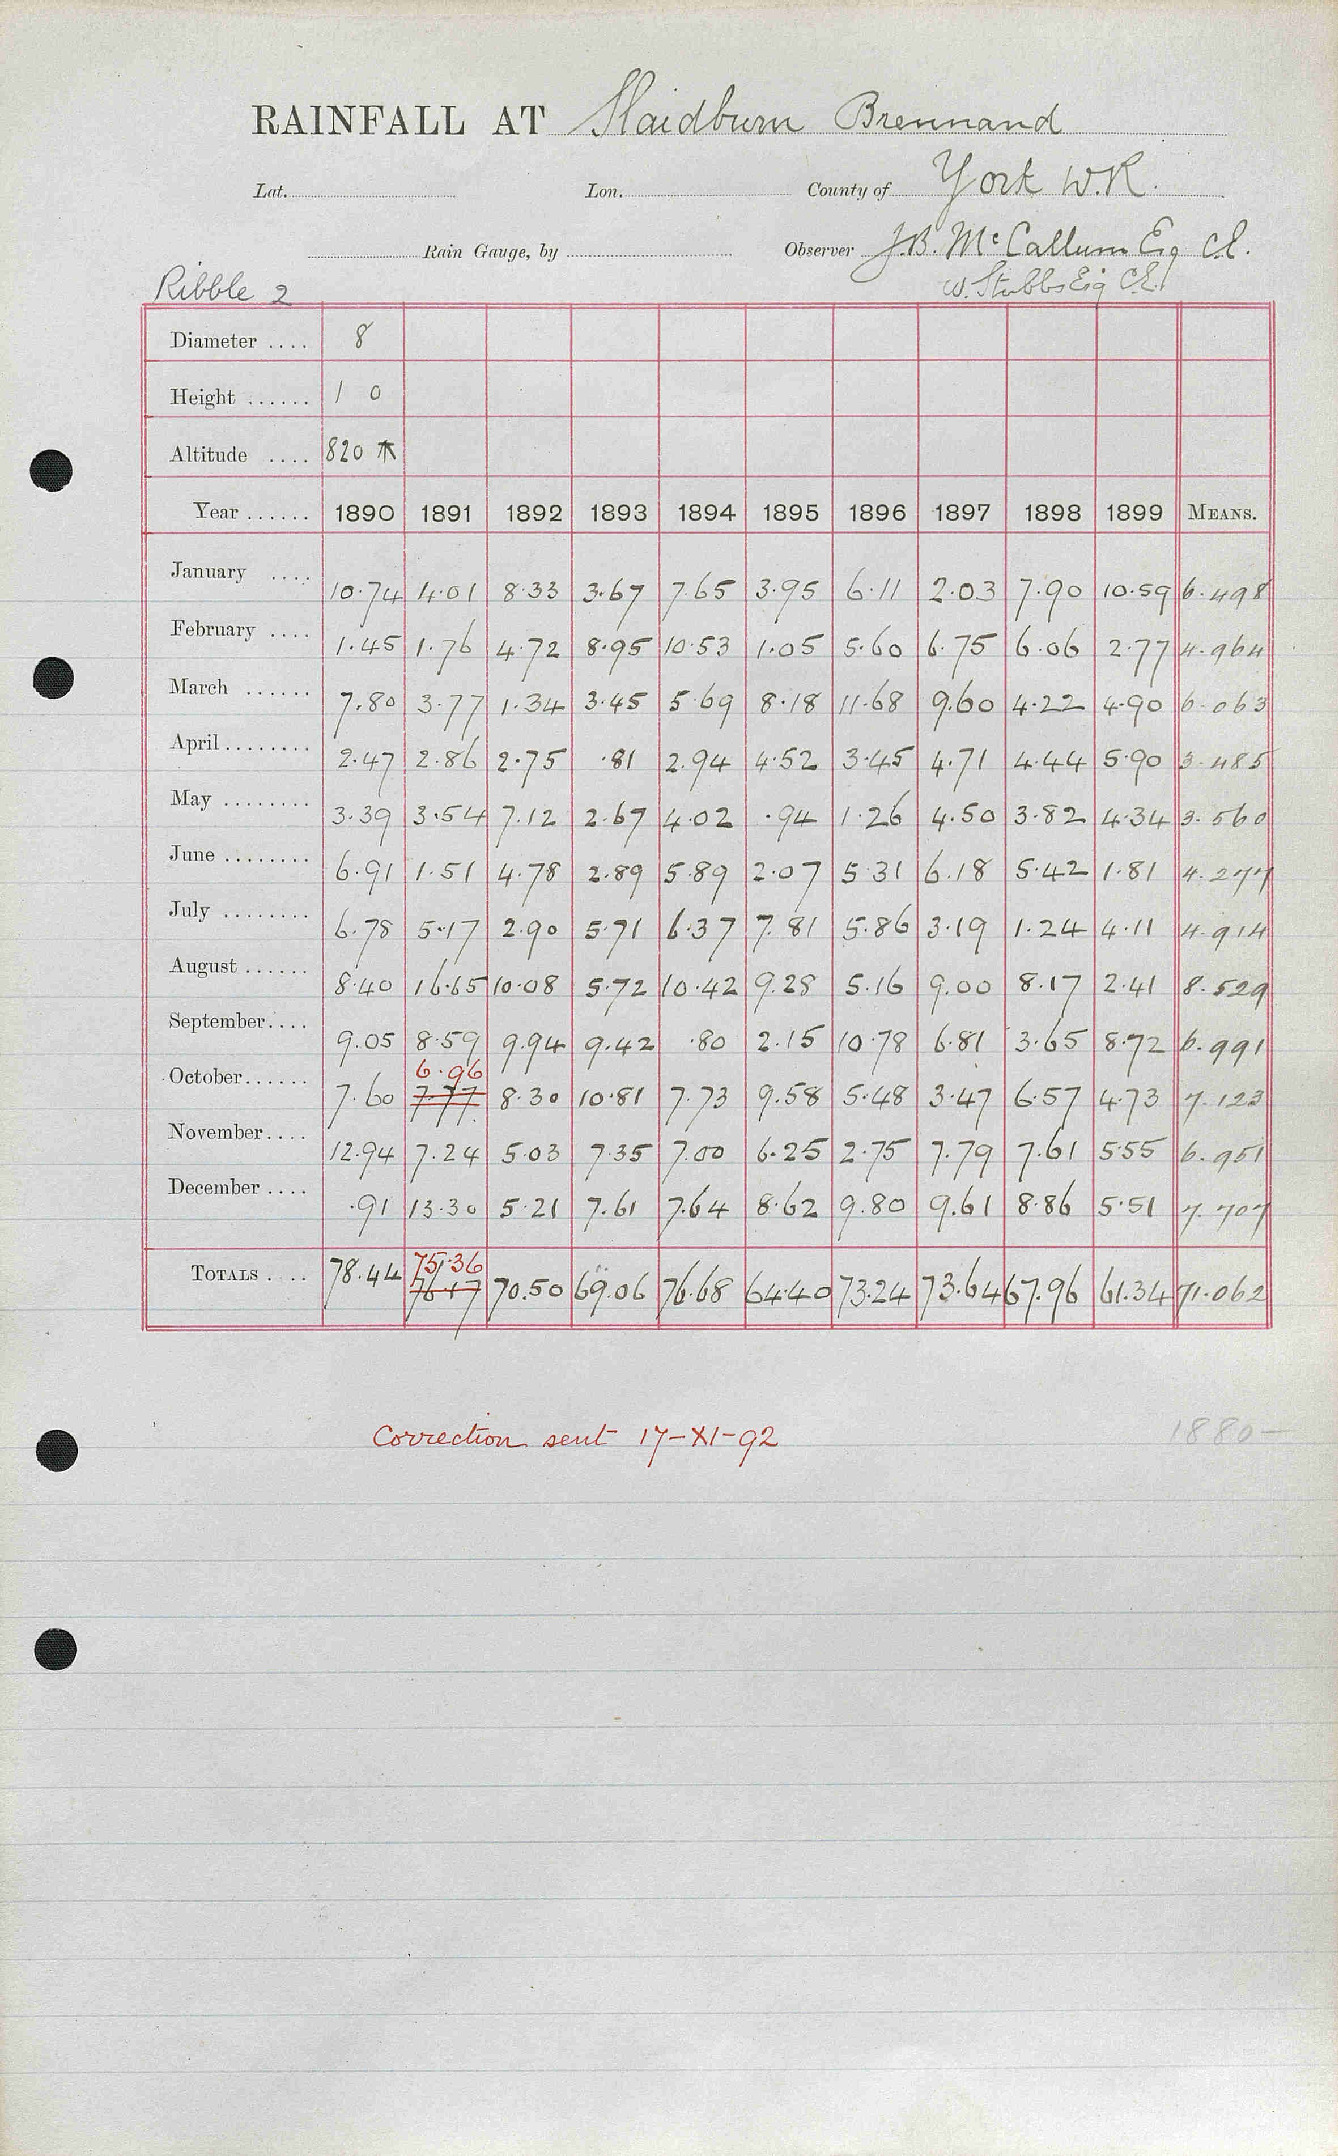 RAINFALL AT Slaidburn Brennand
Lat. Lon. County of York W.R.
Rain Gauge, by Observer J.B. McCallum Esq C.E.
Ribble 2 W. Stubbs Esq C.E.
Diameter .... 8
Height ...... 1 0
Altitude .... 820
Year ...... 1890 1891 1892 1893 1894 1895 1896 1897 1898 1899 MEANS.
January .... 10.74 4.01 8.33 3.67 7.65 3.95 6.11 2.03 7.90 10.59 6.498
February .... 1.45 1.76 4.72 8.95 10.53 1.05 5.60 6.75 6.06 2.77 4.964
March ...... 7.80 3.77 1.34 3.45 5.69 8.18 11.68 9.60 4.22 4.90 6.063
April ........ 2.47 2.86 2.75 .81 2.94 4.52 3.45 4.71 4.44 5.90 3.485
May ........ 3.39 3.54 7.12 2.67 4.02 .94 1.26 4.50 3.82 4.34 3.560
June ........ 6.91 1.51 4.78 2.89 5.89 2.07 5.31 6.18 5.42 1.81 4.277
July ........ 6.78 5.17 2.90 5.71 6.37 7.81 5.86 3.19 1.24 4.11 4.914
August ...... 8.40 16.65 10.08 5.72 10.42 9.28 5.16 9.00 8.17 2.41 8.529
September.... 9.05 8.59 9.94 9.42 .80 2.15 10.78 6.81 3.65 8.72 6.991
6.96
October...... 7.60 7.77 8.30 10.81 7.73 9.58 5.48 3.47 6.57 4.73 7.123
November.... 12.94 7.24 5.03 7.35 7.00 6.25 2.75 7.79 7.61 5.55 6.951
December .... .91 13.30 5.21 7.61 7.64 8.62 9.80 9.61 8.86 5.51 7.707
75.36
TOTALS .... 78.44 76.17 70.50 69.06 76.68 64.40 73.24 73.64 67.96 61.34 71.062
Correction sent 17-XI-92 1880-